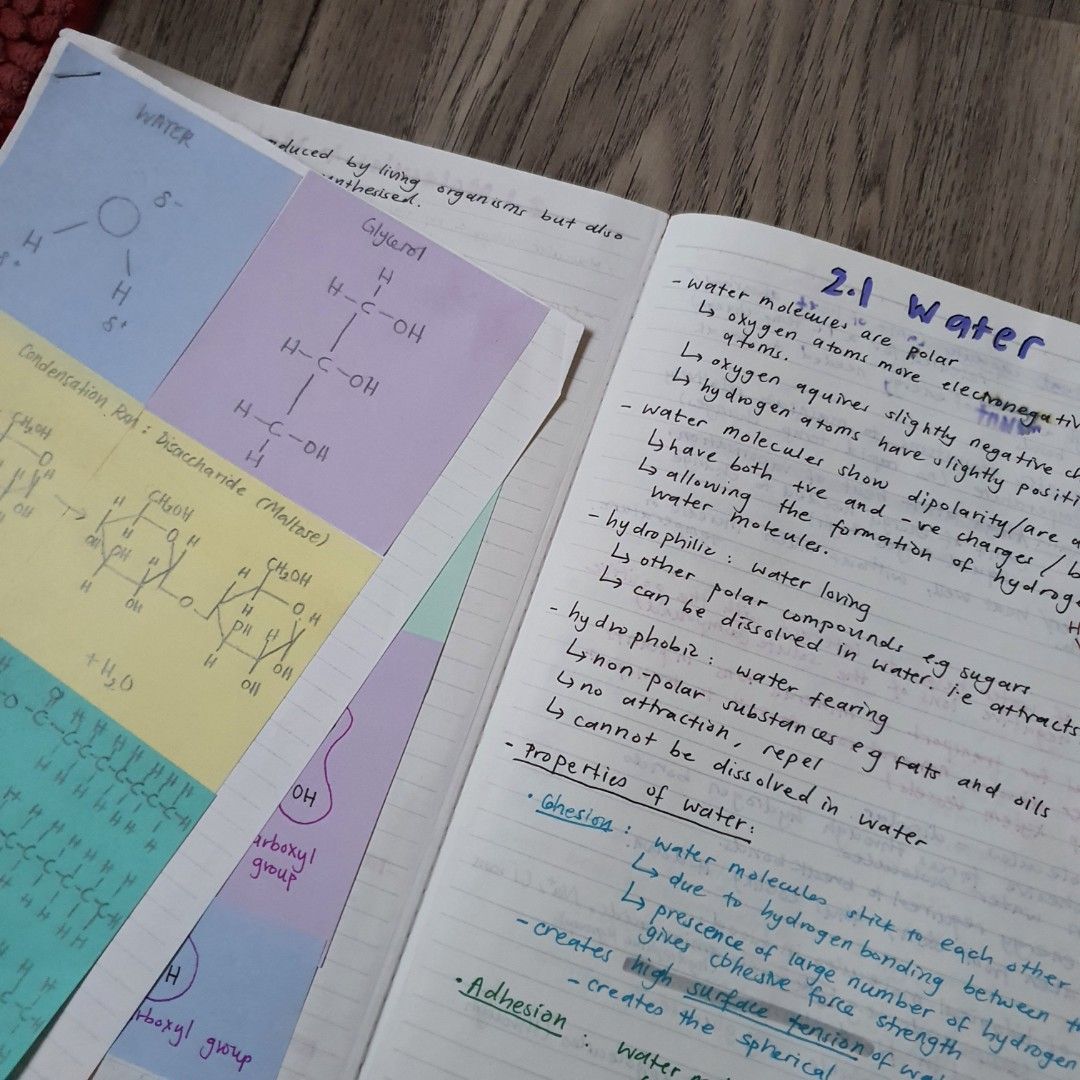 WATER
δ-
H
δ+
H
δ+
Glycerol
H
H-C-OH
H-C-OH
H-C-OH
H
Condensation Rxn: Disaccharide (Maltose)
CH₂OH
O
H
OH
CH₂OH
O
H
H
H
OH
OH
H
H
OH
O
CH₂OH
O
H
H
H
OH
H
OH
OH
+ H₂O
OH
arboxyl
group
H
rboxyl group
oduced by living organisms but also
nthesised.
2.1 Water
- water molecules are polar
↳ oxygen atoms more electronegativ
atoms.
↳ oxygen aquires slightly negative ch
↳ hydrogen atoms have slightly positi
- water molecules show dipolarity/are a
↳ have both +ve and -ve charges / b
↳ allowing the formation of hydroge
water molecules.
- hydrophilic : water loving
↳ other polar compounds e.g sugars
↳ can be dissolved in water. i.e attracts
- hydrophobic : water fearing
↳ non-polar substances eg fats and oils
↳ no attraction, repel
↳ cannot be dissolved in water
- Properties of water:
• Cohesion : water molecules stick to each other
↳ due to hydrogen bonding between th
↳ prescence of large number of hydrogen
gives cohesive force strength
- creates high surface tension of wa
- creates the spherical
• Adhesion : water